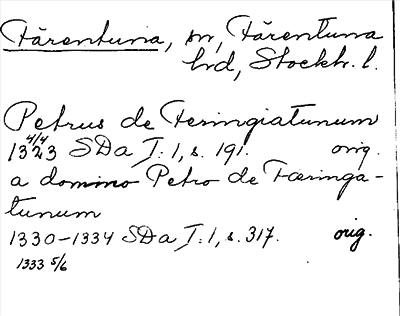 Färentuna, sn, Färentuna
hd, Stockh. l.
Petrus de Feringiatunum
4/4
1323 SDa I:1, s. 191. orig.
a domino Petro de Færinga-
tunum
1330-1334 SDa I:1, s. 317. orig.
1333 5/6